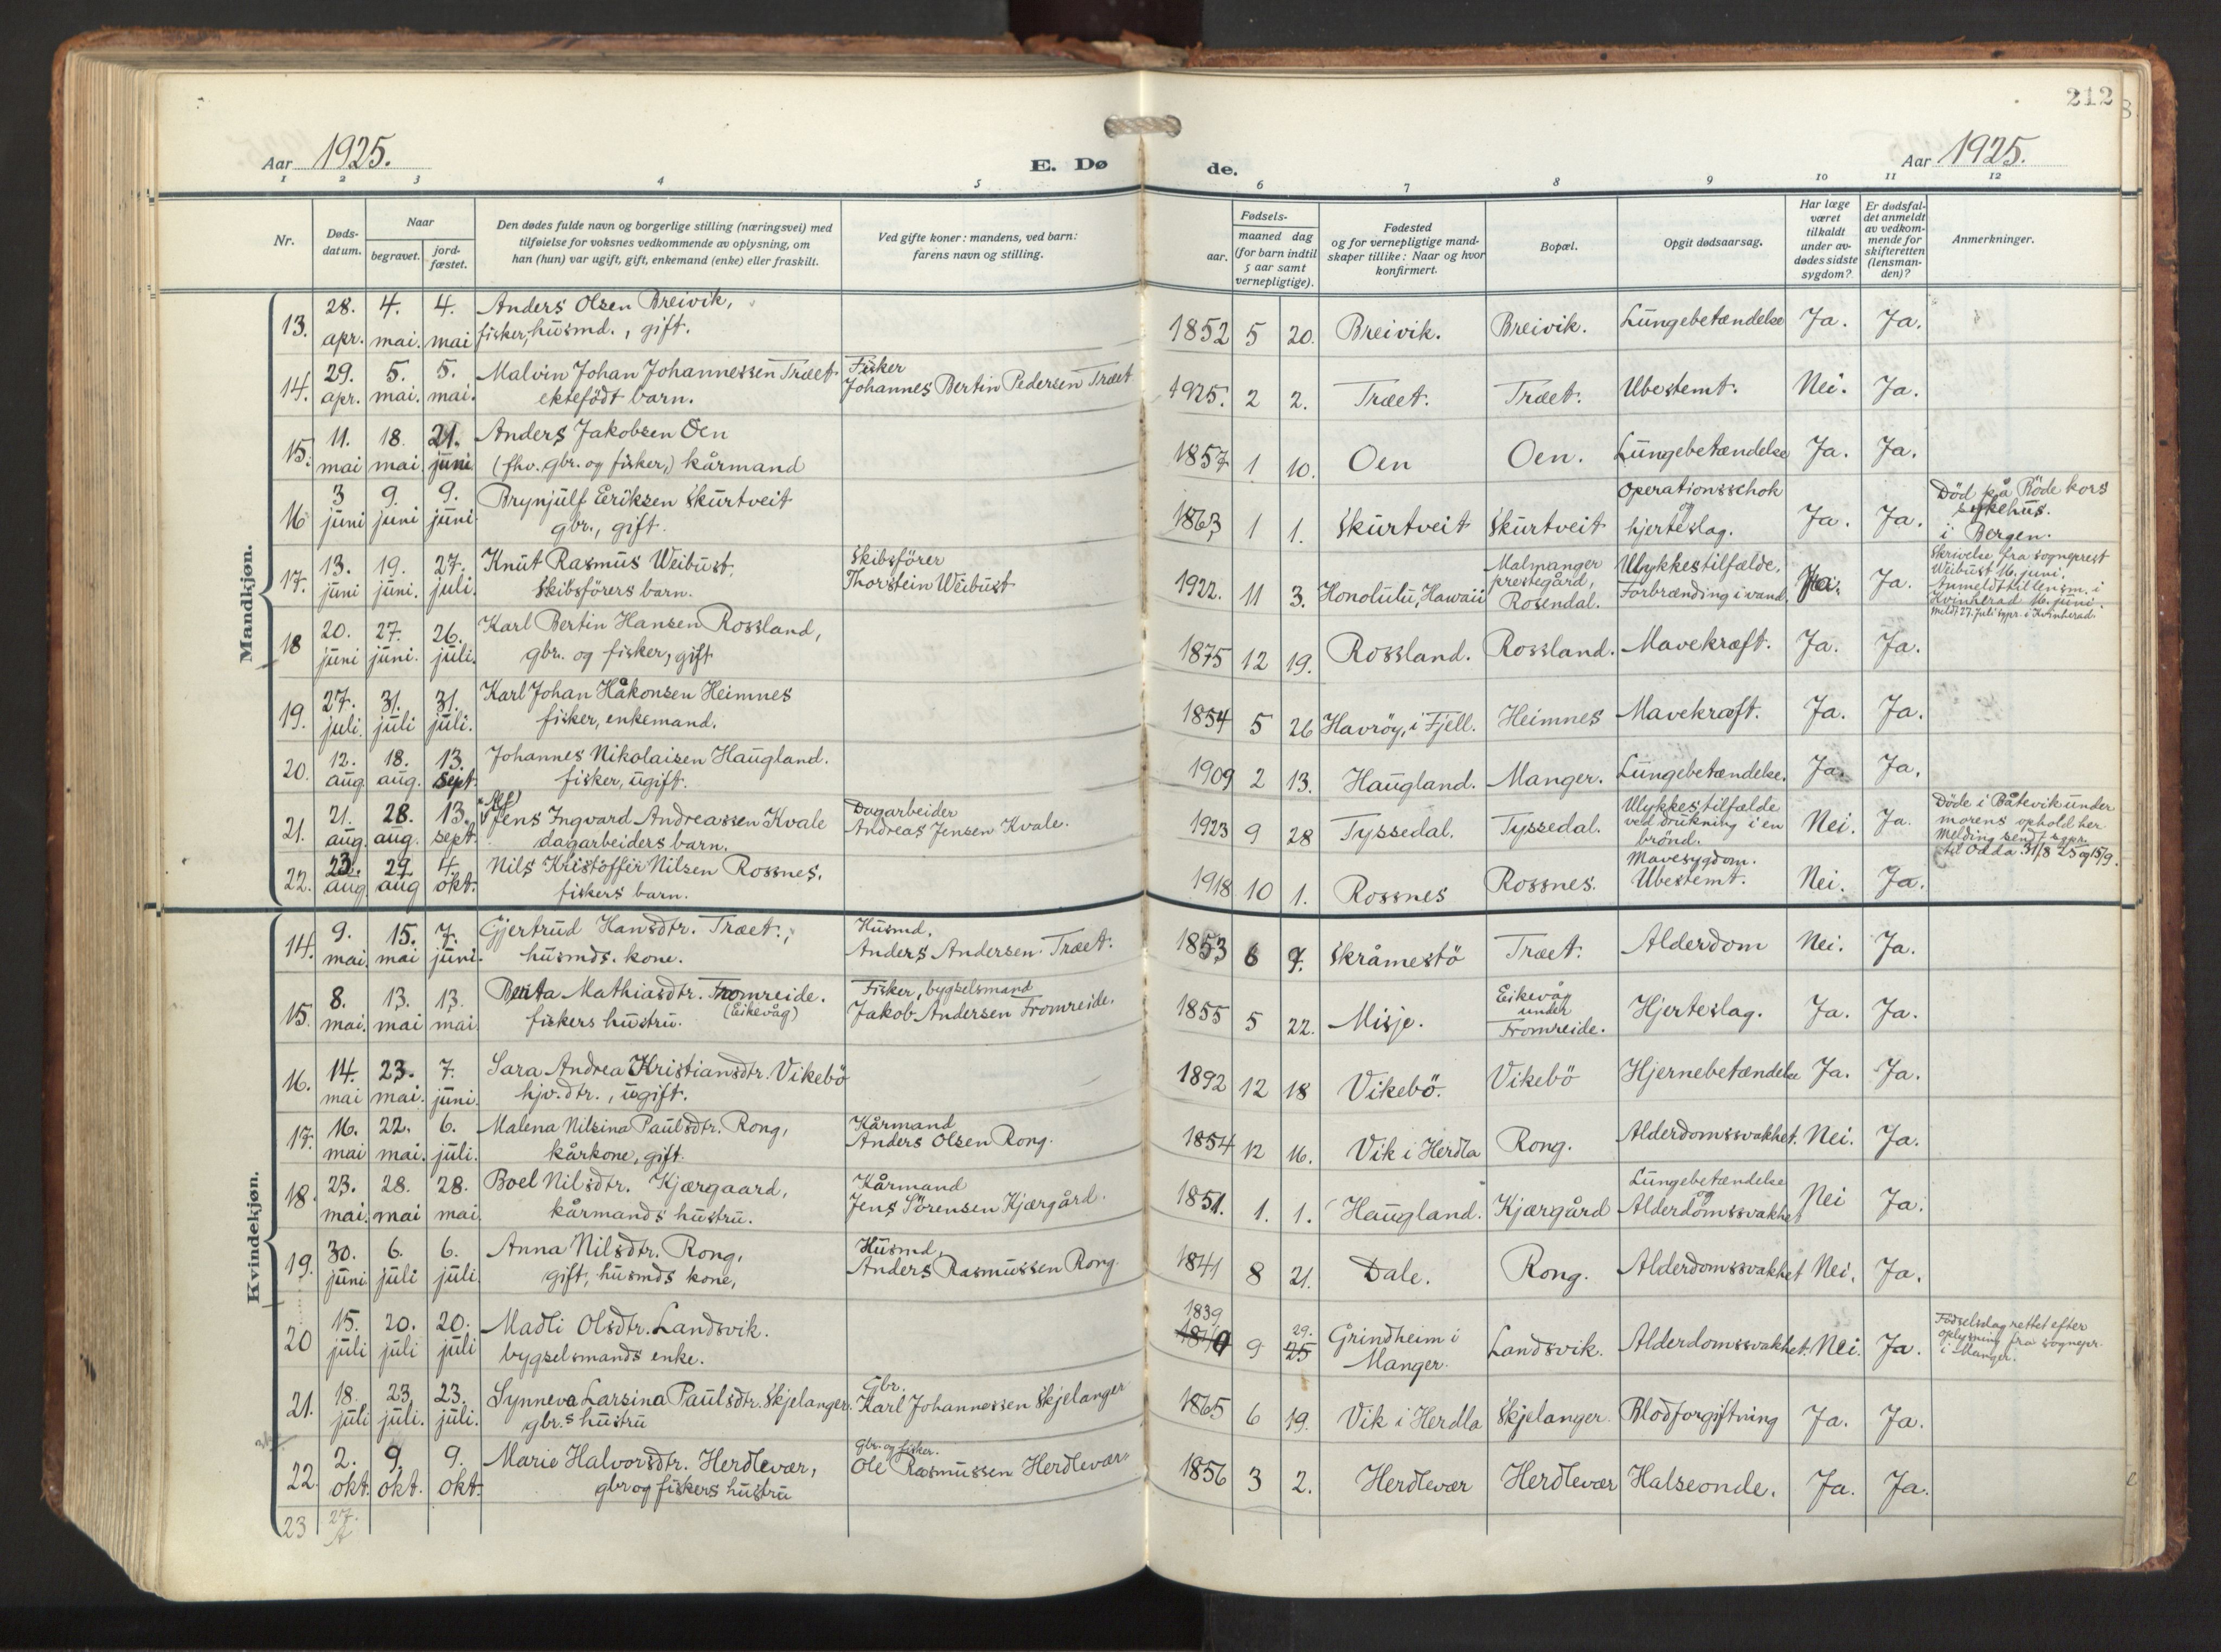 212
Aar 1925.
E. Dø
de.
Aar 1925.
1 2 3 4 5 6 7 8 9 10 11 12
Nr.
Døds-
datum.
Naar
begravet.
jord-
fæstet.
Den dødes fulde navn og borgerlige stilling (næringsvei) med
tilføielse for voksnes vedkommende av oplysning, om
han (hun) var ugift, gift, enkemand (enke) eller fraskilt.
Ved gifte koner: mandens, ved barn:
farens navn og stilling.
Fødsels-
aar.
maaned dag
(for barn indtil
5 aar samt
vernepligtige).
Fødested
og for vernepligtige mand-
skaper tillike: Naar og hvor
konfirmert.
Bopæl.
Opgit dødsaarsag.
Har læge
været
tilkaldt
under av-
dødes sidste
sygdom?
Er dødsfal-
det anmeldt
av vedkom-
mende for
skifteretten
(lensman-
den)?
Anmerkninger.
Mandkjøn.
13. 28. apr. 4. mai. 4. mai
Anders Olsen Breivik,
fisker, husmd., gift.
1852 5 20. Breivik. Breivik. Lungebetændelse Ja. Ja.
14. 29. apr. 5. mai. 5. mai.
Malvin Johan Johannessen Træet
ektefödt barn.
Fisker
Johannes Bertin Pedersen Træet
1925. 2 2. Træet. Træet. Ubestemt. Nei. Ja.
15. 11. mai 18. mai. 21. juni
Anders Jakobsen Oen
(fhv. gbr. og fisker,) kårmand
1857 1 10. Oen Oen. Lungebetændelse Ja. Ja.
16 3 juni 9. juni 9. juni
Brynjulf Eriksen Skurtveit
gbr., gift.
1863 1 1. Skurtveit Skurtveit
Operationsschok
og
hjerteslag.
Ja. Ja.
Död på Röde kors
sykehus.
i Bergen.
17. 13. juni 19. juni. 27. juli.
Knut Rasmus Weibust,
Skibsförers barn.
Skibsförer
Thorstein Weibust
1922. 11 3. Honolulu, Hawaii
Malmanger
prestegård,
Rosendal.
Ulykkestilfælde.
Forbrænding i vand.
Ja. Ja.
Skrivelse fra sogneprest
Weibust 16. juni.
Anmeldt til lensm. i
Kvinherad 16. juni.
Meldt 27. juli sgpr. i Kvinherad.
18 20. juni 27. juni. 26. juli.
Karl Bertin Hansen Rossland,
gbr. og fisker, gift
1875 12 19. Rossland. Rossland. Mavekræft. Ja. Ja.
19. 27. juli. 31. juli 31. juli.
Karl Johan Håkonsen Heimnes
fisker, enkemand.
1854 5 26 Havröy, i Fjell. Heimnes Mavekræft. Ja. Ja.
20. 12. aug. 18. aug. 13. sept.
Johannes Nikolaisen Haugland.
fisker, ugift.
1909 2 13. Haugland. Manger. Lungebetændelse. Ja. Ja.
21. 21. aug. 28. aug. 13. sept.
Alf
Jens Ingvard Andreassen Kvale
dagarbeiders barn.
Dagarbeider
Andreas Jensen Kvale.
1923 9 28 Tyssedal. Tyssedal.
Ulykkestilfælde
ved drukning i en
brönd.
Nei. Ja.
Döde i Båtevik under
morens ophold her.
Melding sendt sgpr.
til Odda 31/8 25 og 15/9.
22. 23. aug. 29 aug 4. okt.
Nils Kristoffer Nilsen Rossnes.
fiskers barn.
1918 10 1. Rossnes Rossnes.
Mavesygdom.
Ubestemt.
Nei. Ja.
Kvindekjøn.
14. 9. mai. 15. mai 7. juni.
Gjertrud Hansdtr. Træet.,
husmds. kone.
Husmd.
Anders Andersen Træet.
1853 6 7. Skråmestö Træet. Alderdom Nei. Ja.
15. 8. mai. 13. mai 13. mai
Berita Mathiasdtr. Fromreide.
fiskers hustru. (Eikevåg)
Fisker, bygselsmand
Jakob Andersen Fromreide.
1855 5 22. Misje.
Eikevåg
under
Fromreide.
Hjerteslag. Ja. Ja.
16. 14. mai 23. mai. 7. juni.
Sara Andrea Kristiansdtr. Vikebö
hjv. dtr., ugift.
1892 12 18 Vikebö. Vikebö Hjernebetændelse Ja. Ja.
17. 16. mai 22. mai. 6. juli.
Malena Nilsina Paulsdtr. Rong,
kårkone, gift.
Kårmand
Anders Olsen Rong.
1854 12 16. Vik i Herdla Rong. Alderdomssvakhet. Nei. Ja.
18. 23. mai. 28. mai 28. mai.
Boel Nilsdtr. Kjærgaard,
kårmands hustru.
Kårmand
Jens Sörensen Kjærgård.
1851. 1. 1. Haugland. Kjærgård
Lungebetændelse
og
Alderdomssvakhet
Nei Ja.
19. 30. juni 6. juli 6. juli.
Anna Nilsdtr. Rong,
gift, husmds kone,
Husmd.
Anders Rasmussen Rong.
1841 8 21. Dale. Rong. Alderdomssvakhet Nei. Ja.
20 15. juli 20. juli 20. juli
Madli Olsdtr. Landsvik.
bygselsmands enke.
1839
9
29.
25
Grindheim i
Manger.
Landsvik. Alderdomssvakhet. Nei. Ja.
Födselsdag rettet efter
oplysning fra sognepr.
i Manger.
21. 18. juli 23. juli. 23. juli.
Synneva Larsina Paulsdtr. Skjelanger.
gbr.s hustru
Gbr.
Karl Johannessen Skjelanger
1865 6 19. Vik i Herdla Skjelanger. Blodforgiftning Ja. Ja.
22. 2. okt. 9. okt. 9. okt.
Marie Halvorsdtr. Herdlevær,
gbr og fiskers hustru
Gbr. og fisker.
Ole Rasmussen Herdlevær
1856 3 2. Herdlevær Herdlevær Halseonde. Ja. Ja.
23 27.